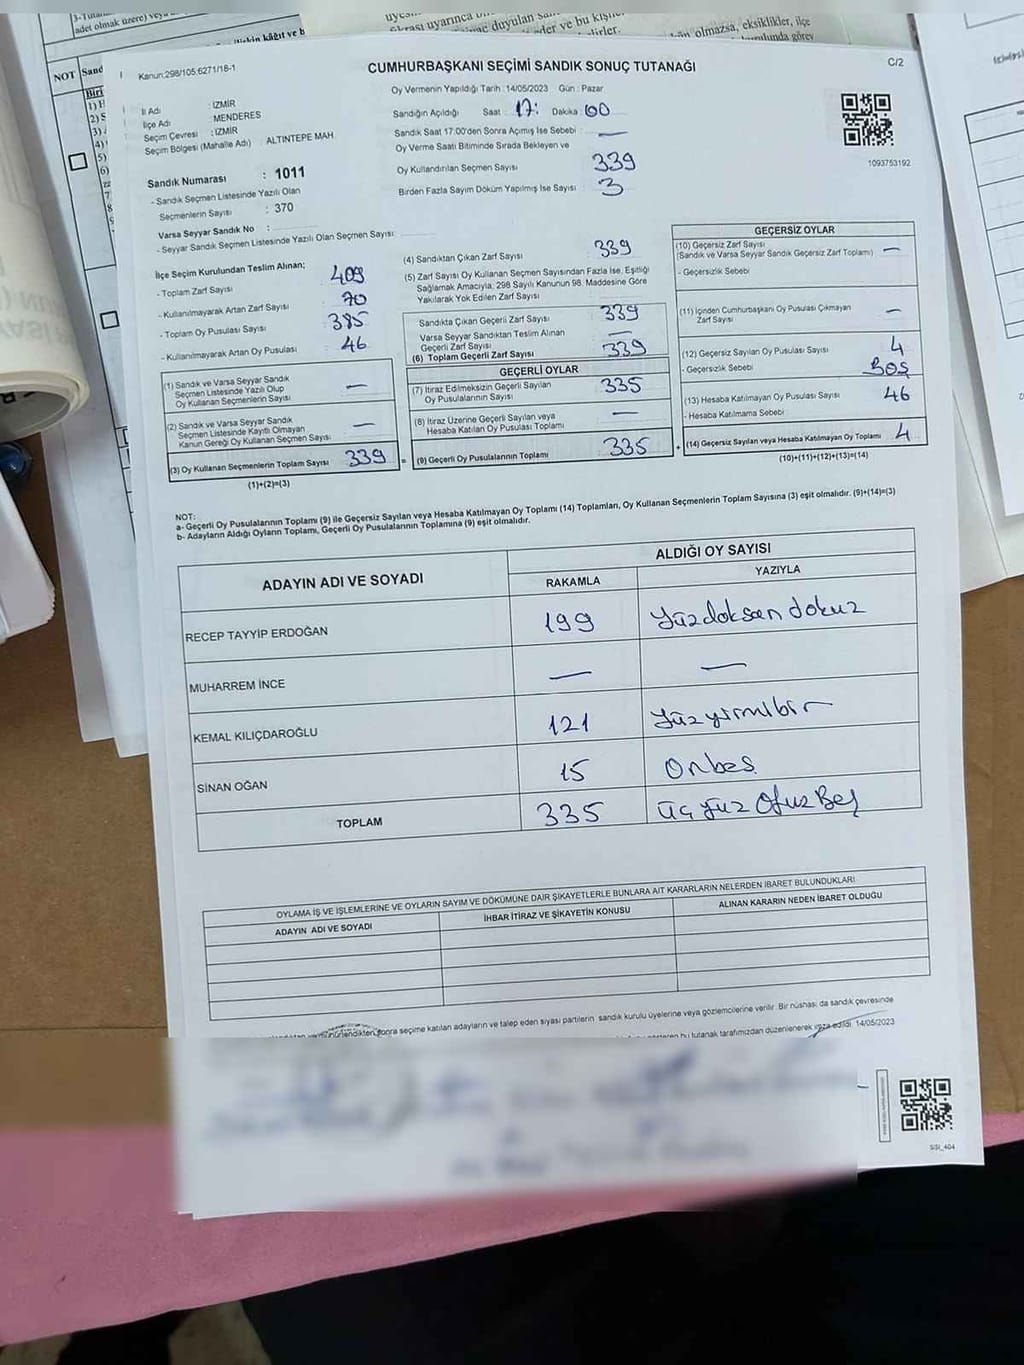 Kanun:298/105:6271/18-1
CUMHURBAŞKANI SEÇİMİ SANDIK SONUÇ TUTANAĞI
C/2
İl Adı : İZMİR
İlçe Adı : MENDERES
Seçim Çevresi : İZMİR
Seçim Bölgesi (Mahalle Adı) : ALTINTEPE MAH.
Sandık Numarası : 1011
- Sandık Seçmen Listesinde Yazılı Olan
Seçmenlerin Sayısı : 370
Varsa Seyyar Sandık No :
- Seyyar Sandık Seçmen Listesinde Yazılı Olan Seçmen Sayısı:
Oy Vermenin Yapıldığı Tarih :14/05/2023 Gün : Pazar
Sandığın Açıldığı Saat 17: Dakika 00
Sandık Saat 17:00'den Sonra Açımış İse Sebebi : —
Oy Verme Saati Bitiminde Sırada Bekleyen ve
Oy Kullandırılan Seçmen Sayısı 339
Birden Fazla Sayım Döküm Yapılmış İse Sayısı 3
1093753192
İlçe Seçim Kurulundan Teslim Alınan;
- Toplam Zarf Sayısı 409
- Kullanılmayarak Artan Zarf Sayısı 70
- Toplam Oy Pusulası Sayısı 385
- Kullanılmayarak Artan Oy Pusulası 46
(1) Sandık ve Varsa Seyyar Sandık
Seçmen Listesinde Yazılı Olup
Oy Kullanan Seçmenlerin Sayısı —
(2) Sandık ve Varsa Seyyar Sandık
Seçmen Listesinde Kayıtlı Olmayan
Kanun Gereği Oy Kullanan Seçmen Sayısı —
(3) Oy Kullanan Seçmenlerin Toplam Sayısı 339
(1)+(2)=(3)
(4) Sandıktan Çıkan Zarf Sayısı 339
(5) Zarf Sayısı Oy Kullanan Seçmen Sayısından Fazla İse, Eşitliği
Sağlamak Amacıyla, 298 Sayılı Kanunun 98. Maddesine Göre
Yakılarak Yok Edilen Zarf Sayısı
Sandıkta Çıkan Geçerli Zarf Sayısı 339
Varsa Seyyar Sandıktan Teslim Alınan
Geçerli Zarf Sayısı —
(6) Toplam Geçerli Zarf Sayısı 339
GEÇERLİ OYLAR
(7) İtiraz Edilmeksizin Geçerli Sayılan
Oy Pusulasının Sayısı 335
(8) İtiraz Üzerine Geçerli Sayılan veya
Hesaba Katılan Oy Pusulası Toplamı —
= (9) Geçerli Oy Pusulalarının Toplamı 335
GEÇERSİZ OYLAR
(10) Geçersiz Zarf Sayısı
(Sandık ve Varsa Seyyar Sandık Geçersiz Zarf Toplamı) —
- Geçersizlik Sebebi
(11) İçinden Cumhurbaşkanı Oy Pusulası Çıkmayan
Zarf Sayısı —
(12) Geçersiz Sayılan Oy Pusulası Sayısı 4
- Geçersizlik Sebebi BOŞ
(13) Hesaba Katılmayan Oy Pusulası Sayısı 46
- Hesaba Katılmama Sebebi
+ (14) Geçersiz Sayılan veya Hesaba Katılmayan Oy Toplamı 4
(10)+(11)+(12)+(13)=(14)
NOT:
a- Geçerli Oy Pusulalarının Toplamı (9) ile Geçersiz Sayılan veya Hesaba Katılmayan Oy Toplamı (14) Toplamları, Oy Kullanan Seçmenlerin Toplam Sayısına (3) eşit olmalıdır. (9)+(14)=(3)
b- Adayların Aldığı Oyların Toplamı, Geçerli Oy Pusulalarının Toplamına (9) eşit olmalıdır.
ADAYIN ADI VE SOYADI
ALDIĞI OY SAYISI
RAKAMLA YAZIYLA
RECEP TAYYİP ERDOĞAN 199 Yüzdoksan dokuz
MUHARREM İNCE — —
KEMAL KILIÇDAROĞLU 121 Yüzyirmibir
SİNAN OĞAN 15 Onbeş
TOPLAM 335 üçyüz OtuzBeş
OYLAMA İŞ VE İŞLEMLERİNE VE OYLARIN SAYIM VE DÖKÜMÜNE DAİR ŞİKAYETLERLE BUNLARA AİT KARARLARIN NELERDEN İBARET BULUNDUKLARI
ADAYIN ADI VE SOYADI İHBAR İTİRAZ VE ŞİKAYETİN KONUSU ALINAN KARARIN NEDEN İBARET OLDUĞU
sonra seçime katılan adayların ve talep eden siyasi partilerin sandık kurulu üyelerine veya gözlemcilerine verilir. Bir nüshası da sandık çevresinde
bu tutanak tarafımızdan düzenlenerek imza edildi. 14/05/2023